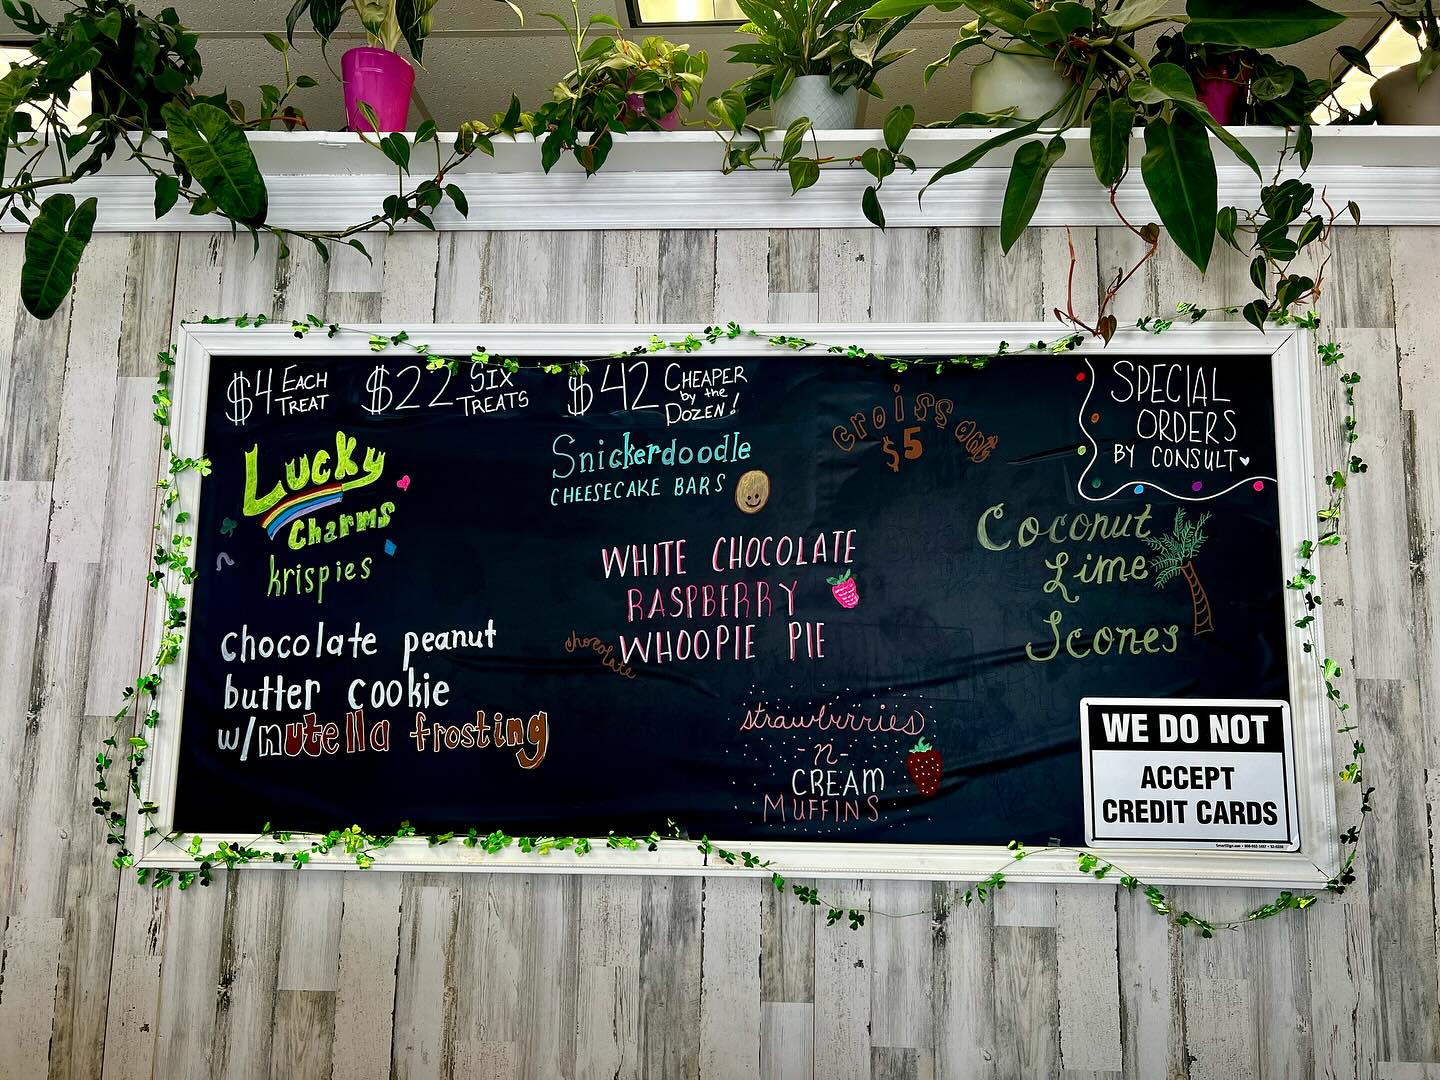 $4 EACH TREAT
$22 SIX TREATS
$42 CHEAPER by the DOZEN!
Lucky
Charms
krispies
chocolate peanut
butter cookie
w/nutella frosting
Snickerdoodle
CHEESECAKE BARS
WHITE CHOCOLATE
RASPBERRY
chocolate
WHOOPIE PIE
strawberries
-n-
CREAM
MUFFINS
croissants
$5
SPECIAL
ORDERS
BY CONSULT
Coconut
Lime
Scones
WE DO NOT
ACCEPT
CREDIT CARDS